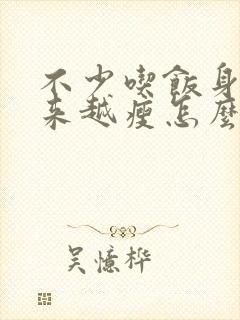 不少喫飯身
来越瘦怎麼
吳憶桦